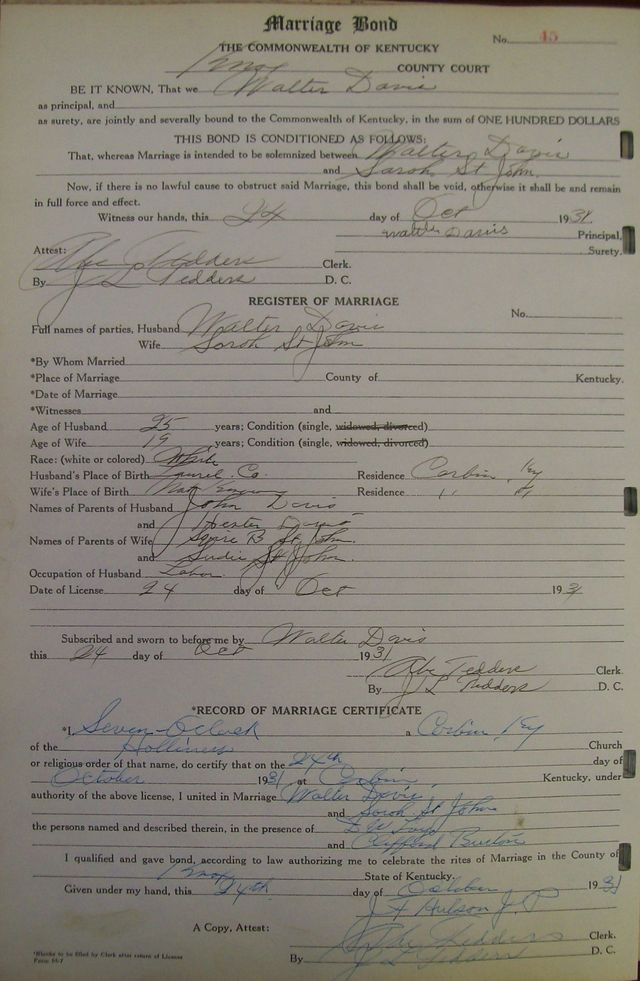 Marriage Bond
No. 45
THE COMMONWEALTH OF KENTUCKY
Knox COUNTY COURT
BE IT KNOWN, That we Walter Davis
as principal, and
as surety, are jointly and severally bound to the Commonwealth of Kentucky, in the sum of ONE HUNDRED DOLLARS
THIS BOND IS CONDITIONED AS FOLLOWS:
That, whereas Marriage is intended to be solemnized between Walter Davis
and Sarah St John.
Now, if there is no lawful cause to obstruct said Marriage, this bond shall be void, otherwise it shall be and remain
in full force and effect.
Witness our hands, this 24 day of Oct 1931.
Walter Davis Principal,
Surety.
Attest:
Abe Tedders Clerk.
By J L Tedders D. C.
REGISTER OF MARRIAGE
No.
Full names of parties, Husband Walter Davis
Wife Sarah St John
*By Whom Married
*Place of Marriage County of Kentucky.
*Date of Marriage
*Witnesses and
Age of Husband 25 years; Condition (single, widowed, divorced)
Age of Wife 19 years; Condition (single, widowed, divorced)
Race: (white or colored) White
Husband's Place of Birth Laurel Co. Residence Corbin, Ky
Wife's Place of Birth Residence " Ky
Names of Parents of Husband John Davis
and Hester Davis
Names of Parents of Wife Squre B St John.
and Sudie St John.
Occupation of Husband Labor.
Date of License 24 day of Oct 1931
Subscribed and sworn to before me by Walter Davis
this 24 day of Oct 1931
Abe Tedders Clerk
By J L Tedders D. C.
*RECORD OF MARRIAGE CERTIFICATE
*I, Seven-Oclock a Corbin, Ky
of the Holliness Church
or religious order of that name, do certify that on the 24th day of
October 1931 at Corbin, Kentucky, under
authority of the above license, I united in Marriage Walter Davis,
and Sarah St John
the persons named and described therein, in the presence of
and Clifford Burton
I qualified and gave bond, according to law authorizing me to celebrate the rites of Marriage in the County of
Knox State of Kentucky.
Given under my hand, this 24th day of October 1931
J. P.
A Copy, Attest: Abe Tedders Clerk.
By J L Tedders D. C.
*Blanks to be filled by Clerk after return of License